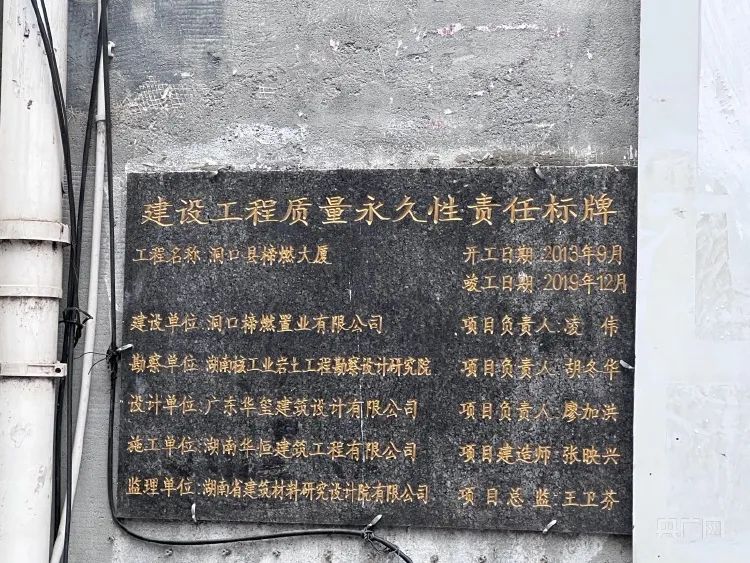 建设工程质量永久性责任标牌
工程名称:洞口县樟燃大厦
开工日期:2013年9月
竣工日期:2019年12月
建设单位:洞口樟燃置业有限公司
项目负责人:凌 伟
勘察单位:湖南核工业岩土工程勘察设计研究院
项目负责人:胡冬华
设计单位:广东华玺建筑设计有限公司
项目负责人:廖加洪
施工单位:湖南华恒建筑工程有限公司
项目建造师:张映兴
监理单位:湖南省建筑材料研究设计院有限公司
项目总监:王卫芬
央广网